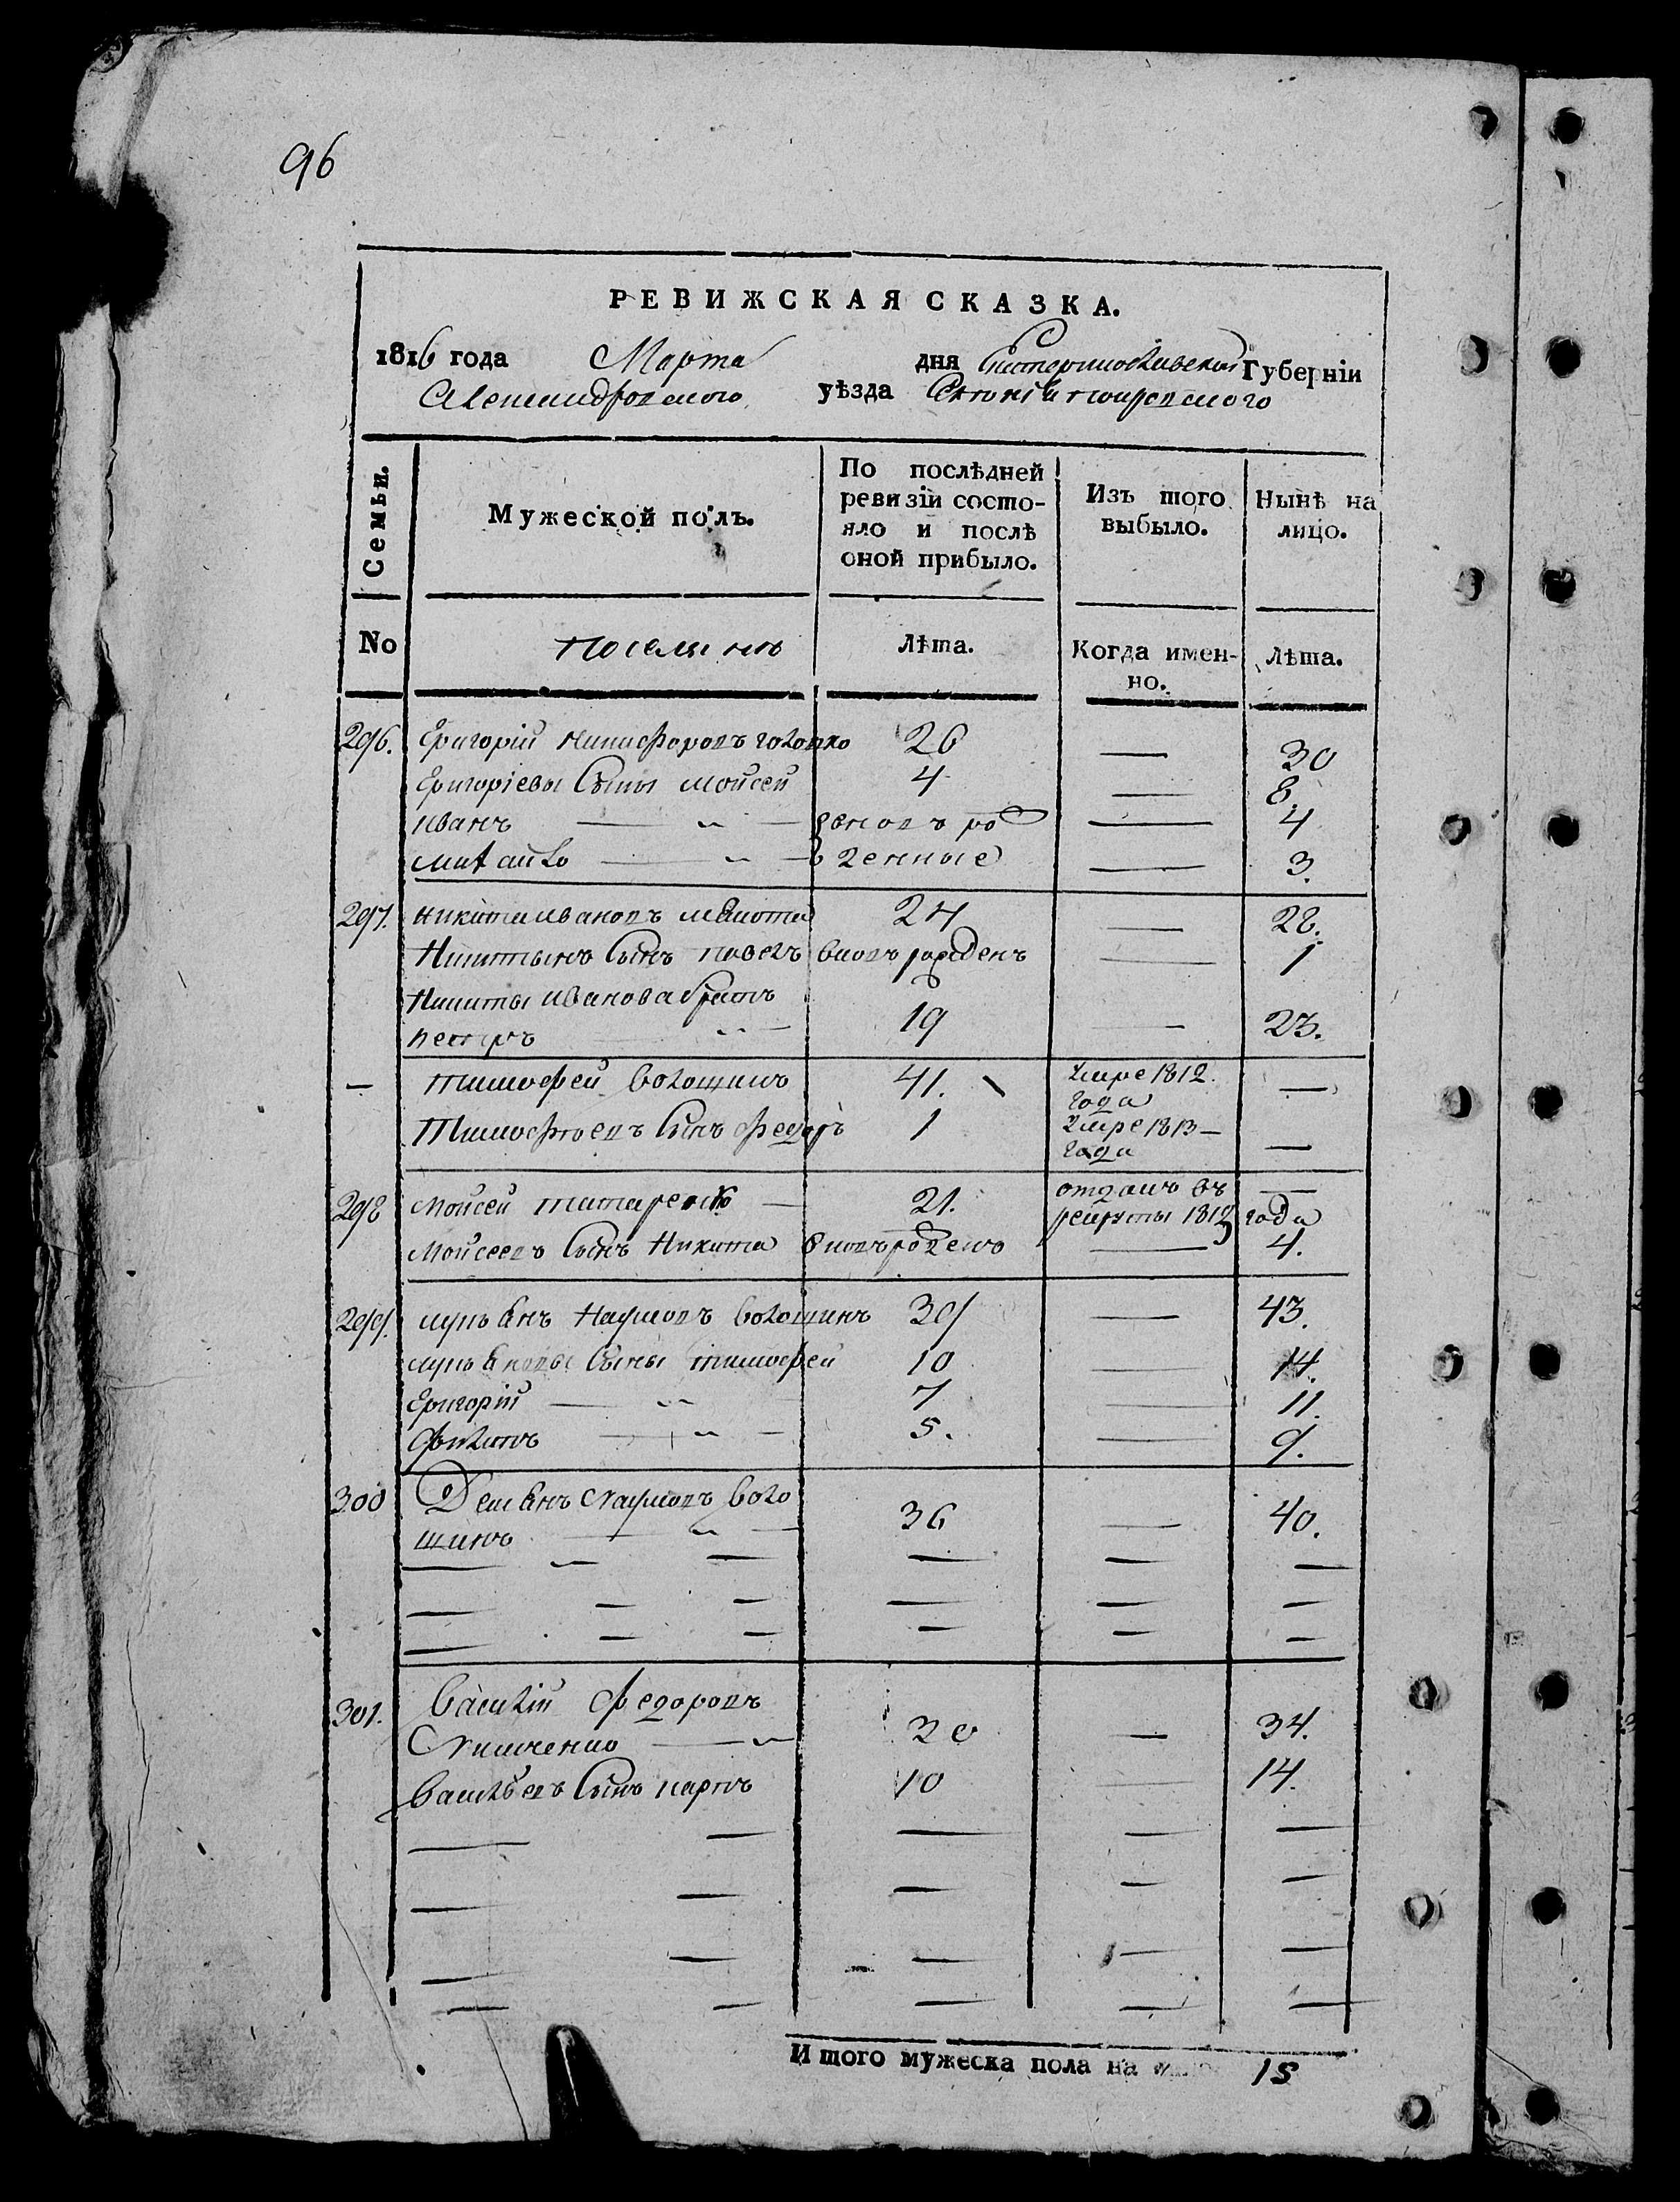 96
РЕВИЖСКАЯ СКАЗКА.
1816 года Марта дня Екатеринославской Губернїи
Александровского уѣзда
Семьи.
Мужеской полъ.
По послѣдней ревизїи состояло и послѣ оной прибыло.
Изъ того выбыло.
Нынѣ на лицо.
No
Поселянъ
Лѣта.
Когда именно.
Лѣта.
296. Григорій Никифоровъ головко 26 — 30
Григорїевы Сыны моисей 4 — 8.
иванъ — " — вновь ро — 4
михаило — " — жденные — 3.
297. никита ивановъ 24 — 28.
Никитынъ Сынъ павелъ вновь рожденъ — 1
Никиты иванова братъ
петръ — " — 19 — 23.
— тимофей волошинъ 41. умре 1812. —
года
Тимофѣевъ Сынъ федоръ 1 умре 1813 —
года —
298 Моисей татаренко — 21. отданъ въ —
рекруты 1812 года
Моисеевъ Сынъ Никита вновь рожденъ — 4.
299. лукьянъ Наумовъ волошинъ 39 — 43.
лукьяновы Сыны тимофей 10 — 14.
Григорїй — " — 7 — 11.
филипъ — " — 5. — 9.
300 Демьянъ Наумовъ воло
шинъ — " — 36 — 40.
301. Василїй федоровъ
— " 30 — 34.
Васильевъ Сынъ карпъ 10 — 14.
Итого мужеска пола на 15